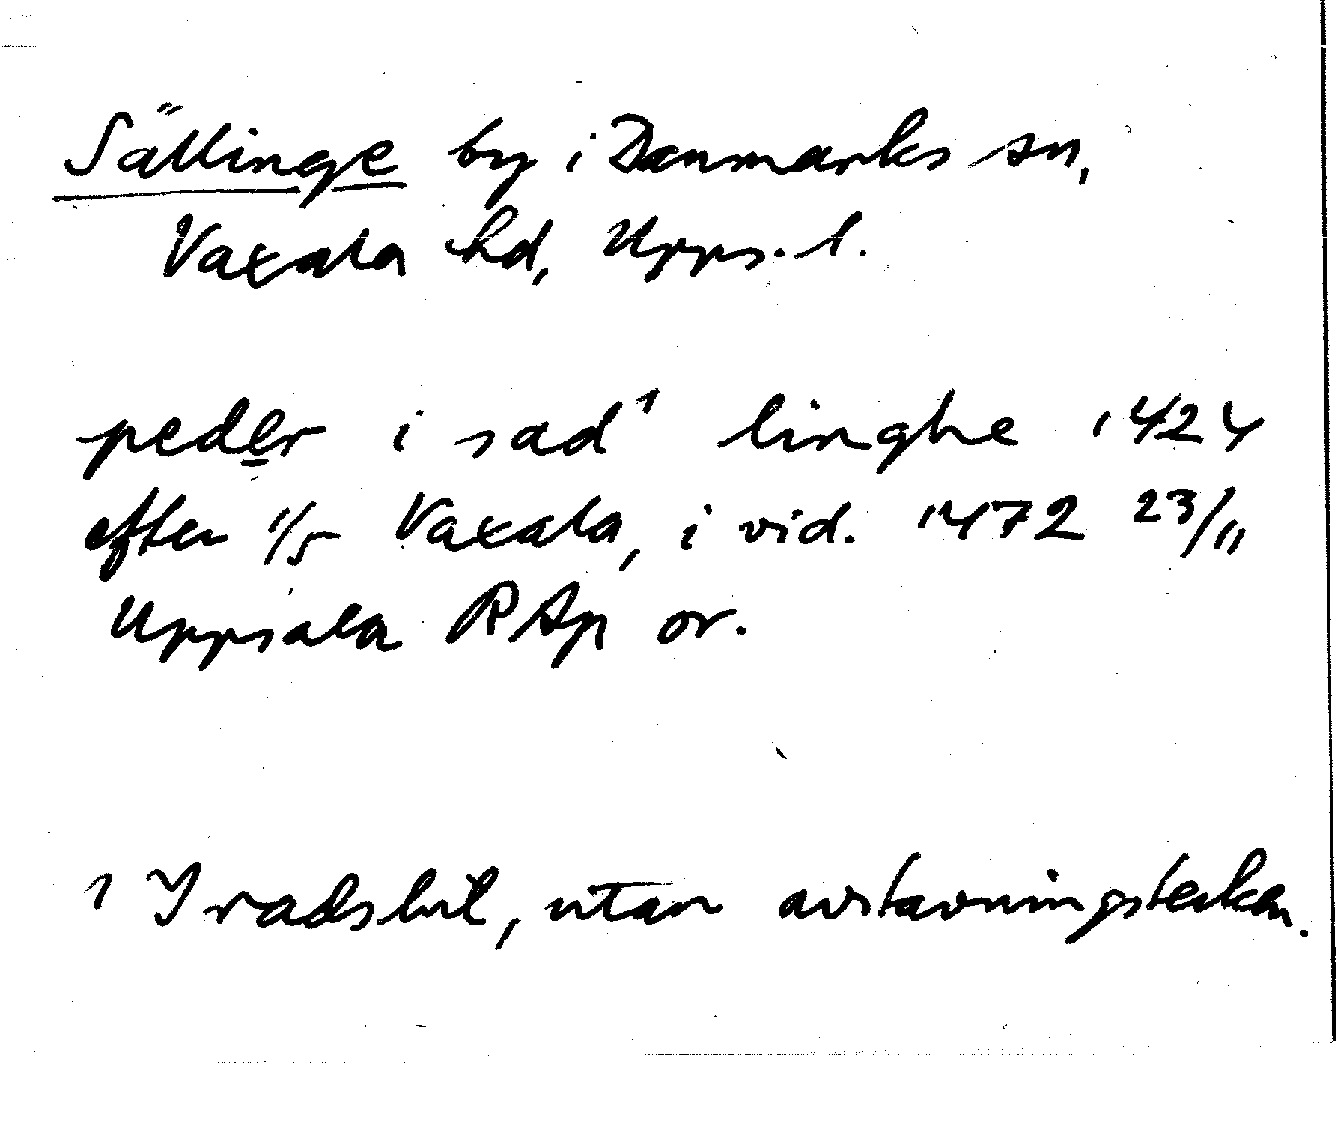 Sällinge by i Danmarks sn,
Vaxala hd, Upps. l.
peder i sad¹ linghe 1424
efter 1/5 Vaxala, i vid. 1472 23/11
Uppsala RAp or.
1 I radslut, utan avstavningstecken.